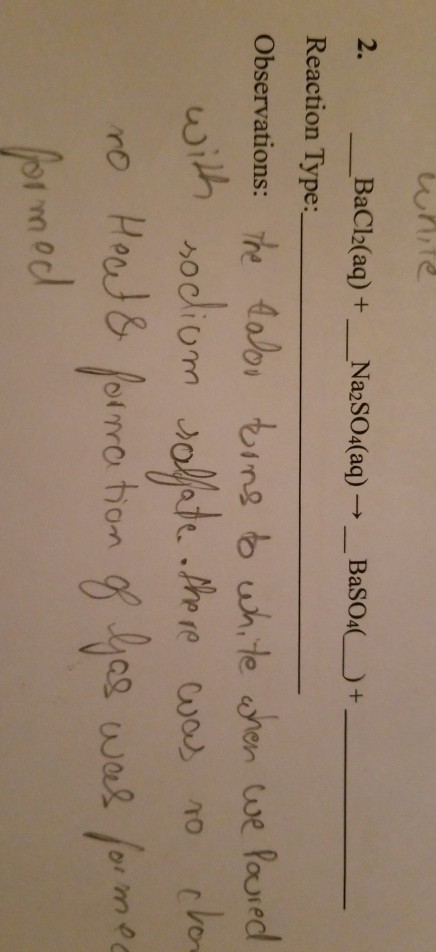 white
2. ___BaCl₂(aq) + ___Na₂SO₄(aq) → __ BaSO₄(__) + ____________
Reaction Type:____________
Observations: the turns to white when we Poured
with sodium solfate. there was no
no Heat & formation of gas was formed
formed